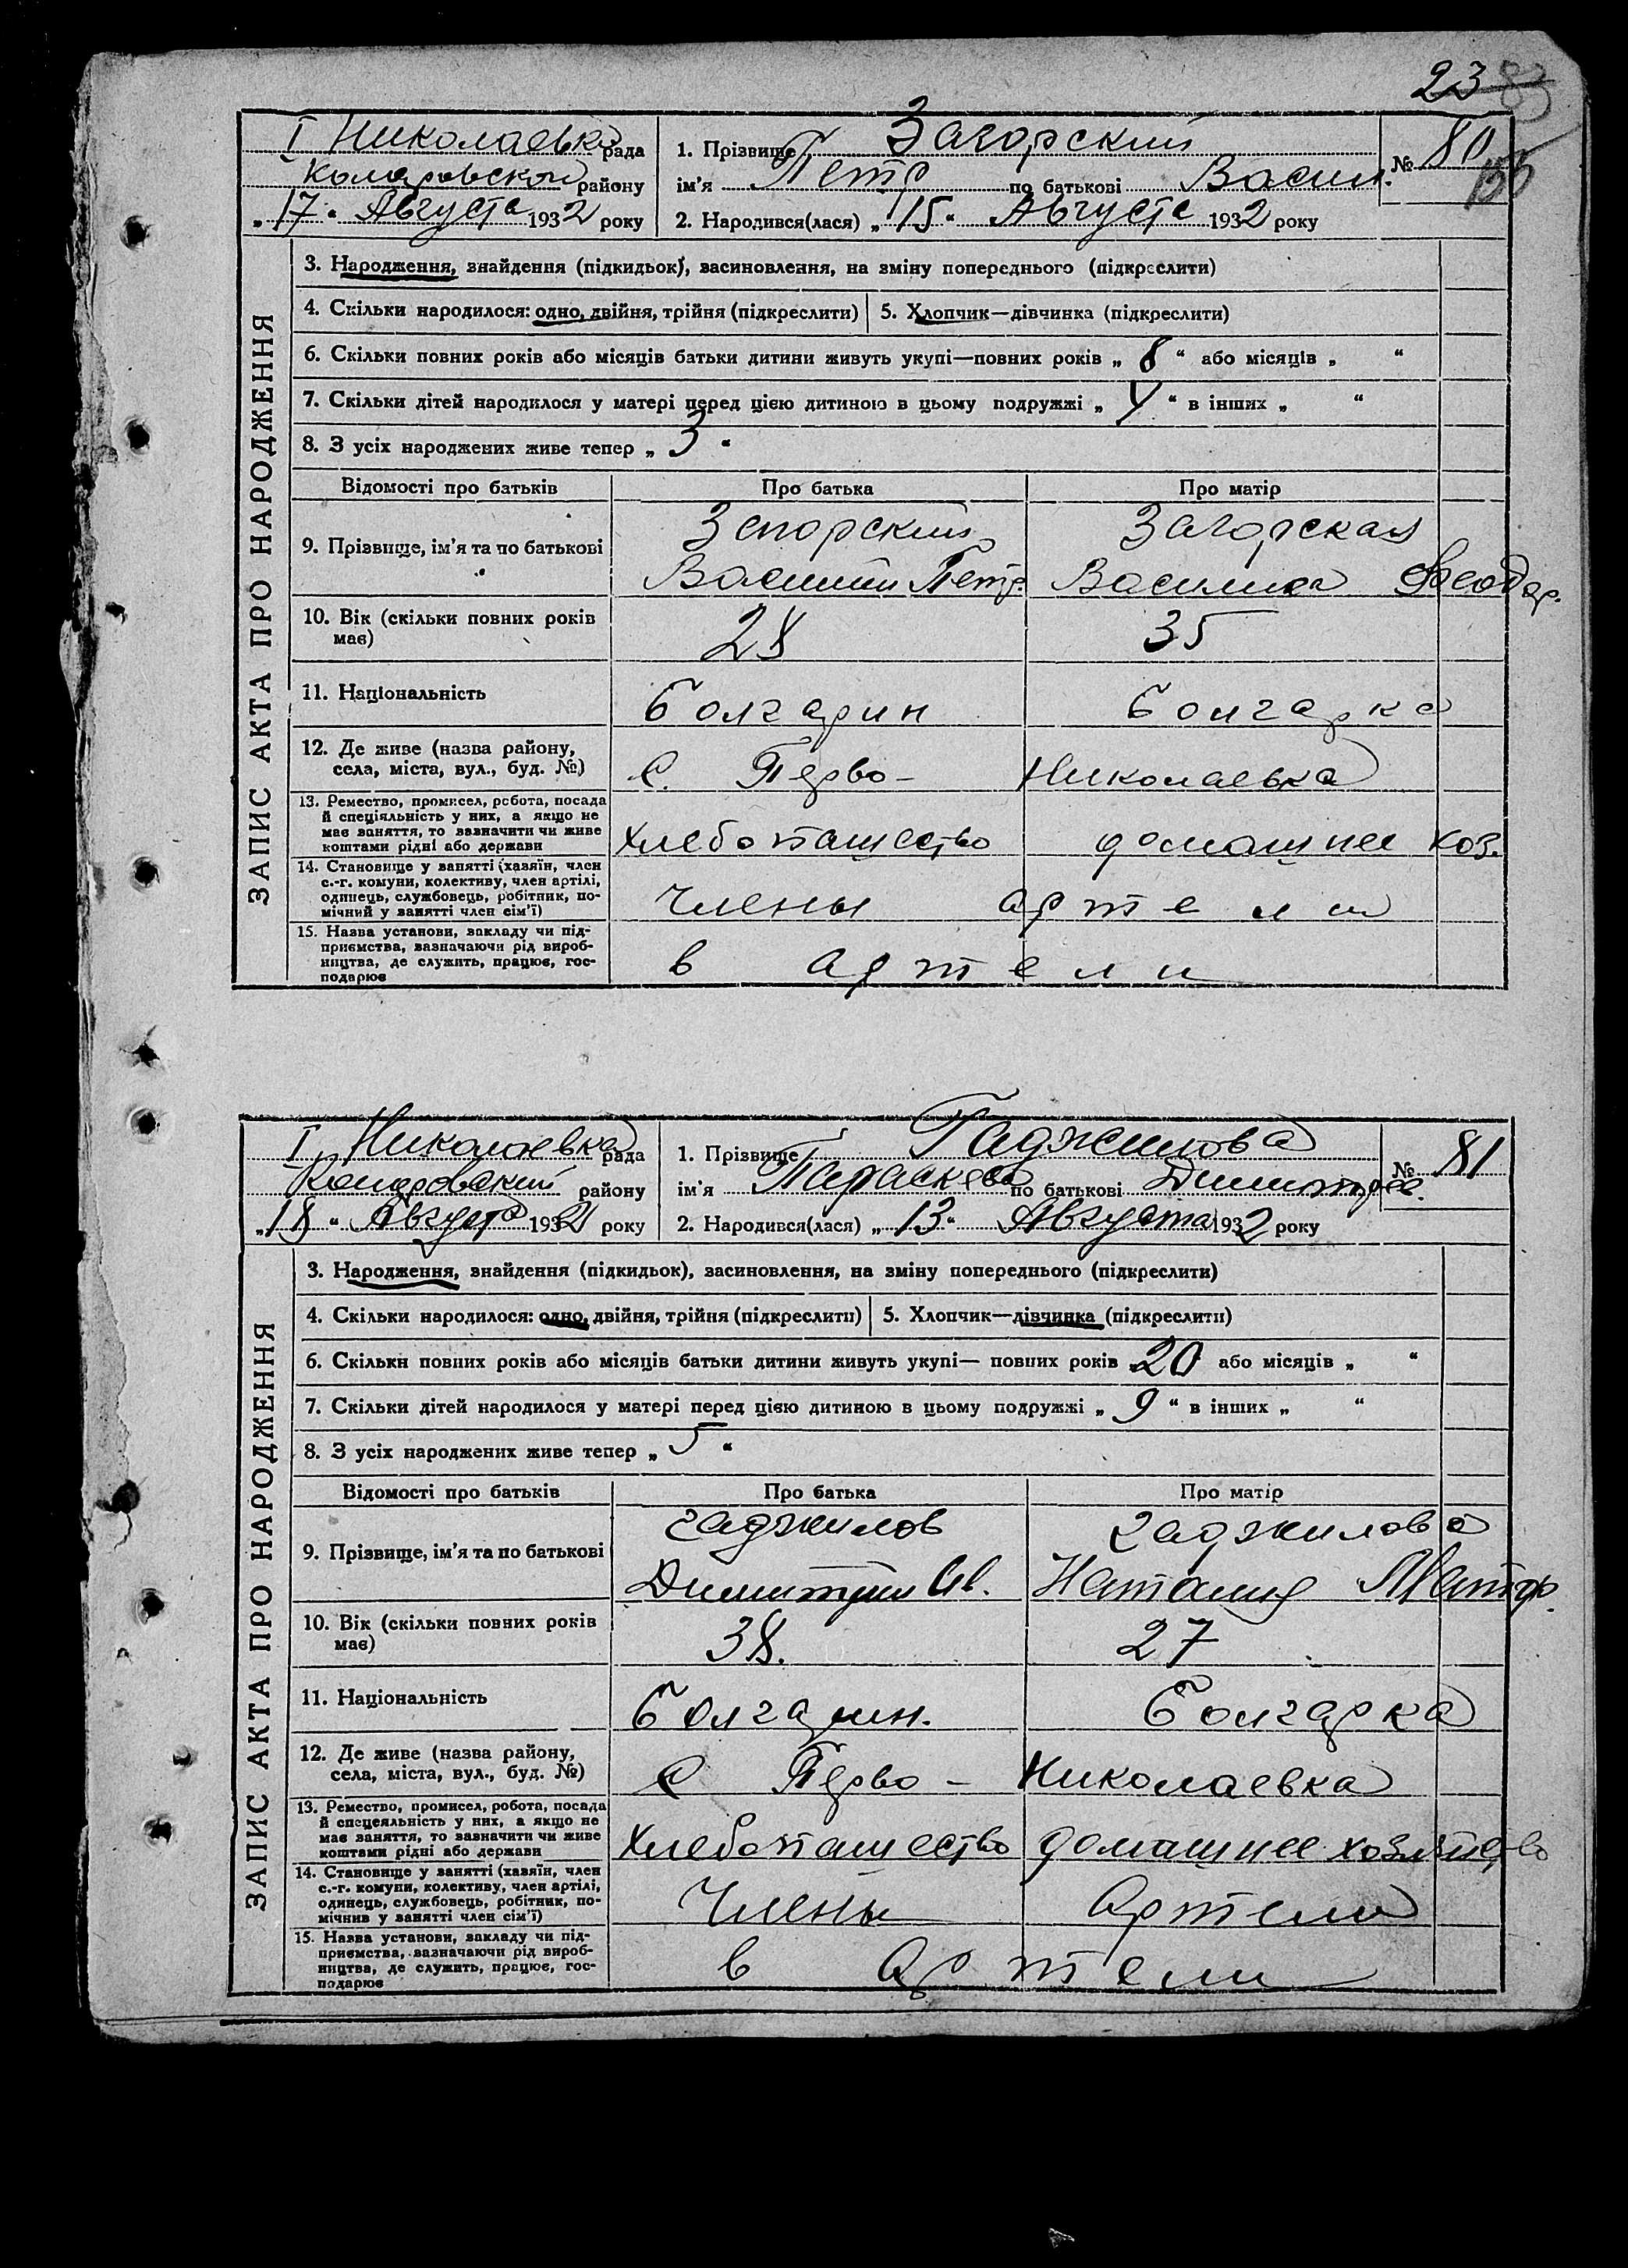 23
I Николаевка рада
Комаровской району
„17“ Августа 1932 року
1. Прізвище Загорский
ім'я Петр по батькові Васил.
2. Народився(лася) „15“ Августа 1932 року
№ 80
ЗАПИС АКТА ПРО НАРОДЖЕННЯ
3. Народження, знайдення (підкидьок), васиновлення, на зміну попереднього (підкреслити)
4. Скільки народилося: одно, двійня, трійня (підкреслити) 5. Хлопчик—дівчинка (підкреслити)
6. Скільки повних років або місяців батьки дитини живуть укупі—повних років „8“ або місяців „ “
7. Скільки дітей народилося у матері перед цією дитиною в цьому подружжі „4“ в інших „ “
8. З усіх народжених живе тепер „3“
Відомості про батьків Про батька Про матір
9. Прізвище, ім'я та по батькові
Загорский Загорская
Василий Петр. Василиса Феодор.
10. Вік (скільки повних років має) 28 35
11. Національність Болгарин болгарка
12. Де живе (назва району,
села, міста, вул., буд. №) С. Перво- Николаевка
13. Ремество, промисел, робота, посада
й спеціяльність у них, а якщо не
має заняття, то зазначити чи живе
коштами рідні або держави
Хлебопашество домашнее хоз.
14. Становище у занятті (хазяїн, член
с.-г. комуни, колективу, член артілі,
одинець, службовець, робітник, по-
мічний у занятті член сім'ї)
Члены артели
15. Назва установи, закладу чи під-
приємства, зазначаючи рід вироб-
ництва, де служить, працює, гос-
подарює
в артели
I Николаевка рада
Комаровский району
„18“ Августа 1932 року
1. Прізвище Гаджилова
ім'я Параскева по батькові Димитрев.
2. Народився(лася) „13“ Августа 1932 року
№ 81
ЗАПИС АКТА ПРО НАРОДЖЕННЯ
3. Народження, знайдення (підкидьок), засиновлення, на зміну попереднього (підкреслити)
4. Скільки народилося: одно, двійня, трійня (підкреслити) 5. Хлопчик—дівчинка (підкреслити)
6. Скільки повних років або місяців батьки дитини живуть укупі— повних років 20 або місяців „ “
7. Скільки дітей народилося у матері перед цією дитиною в цьому подружжі „9“ в інших „ “
8. З усіх народжених живе тепер „5“
Відомості про батьків Про батька Про матір
9. Прізвище, ім'я та по батькові
Гаджилов Гаджилова
Димитрий Ив. Наталия
10. Вік (скільки повних років має) 38. 27
11. Національність Болгарин. Болгарка
12. Де живе (назва району,
села, міста, вул., буд. №) С Перво - Николаевка
13. Ремество, промисел, робота, посада
й спецеяльність у них, а якщо не
має заняття, то зазначити чи живе
коштами рідні або держави
Хлебопашество домашнее хозяйство
14. Становище у занятті (хазяїн, член
с.-г. комуни, колективу, член артілі,
одинець, службовець, робітник, по-
мічнив у занятті член сім'ї)
Члены Артели
15. Назва установи, закладу чи під-
приємства, зазначаючи рід вироб-
ництва, де служить, працює, гос-
подарює
в Артели